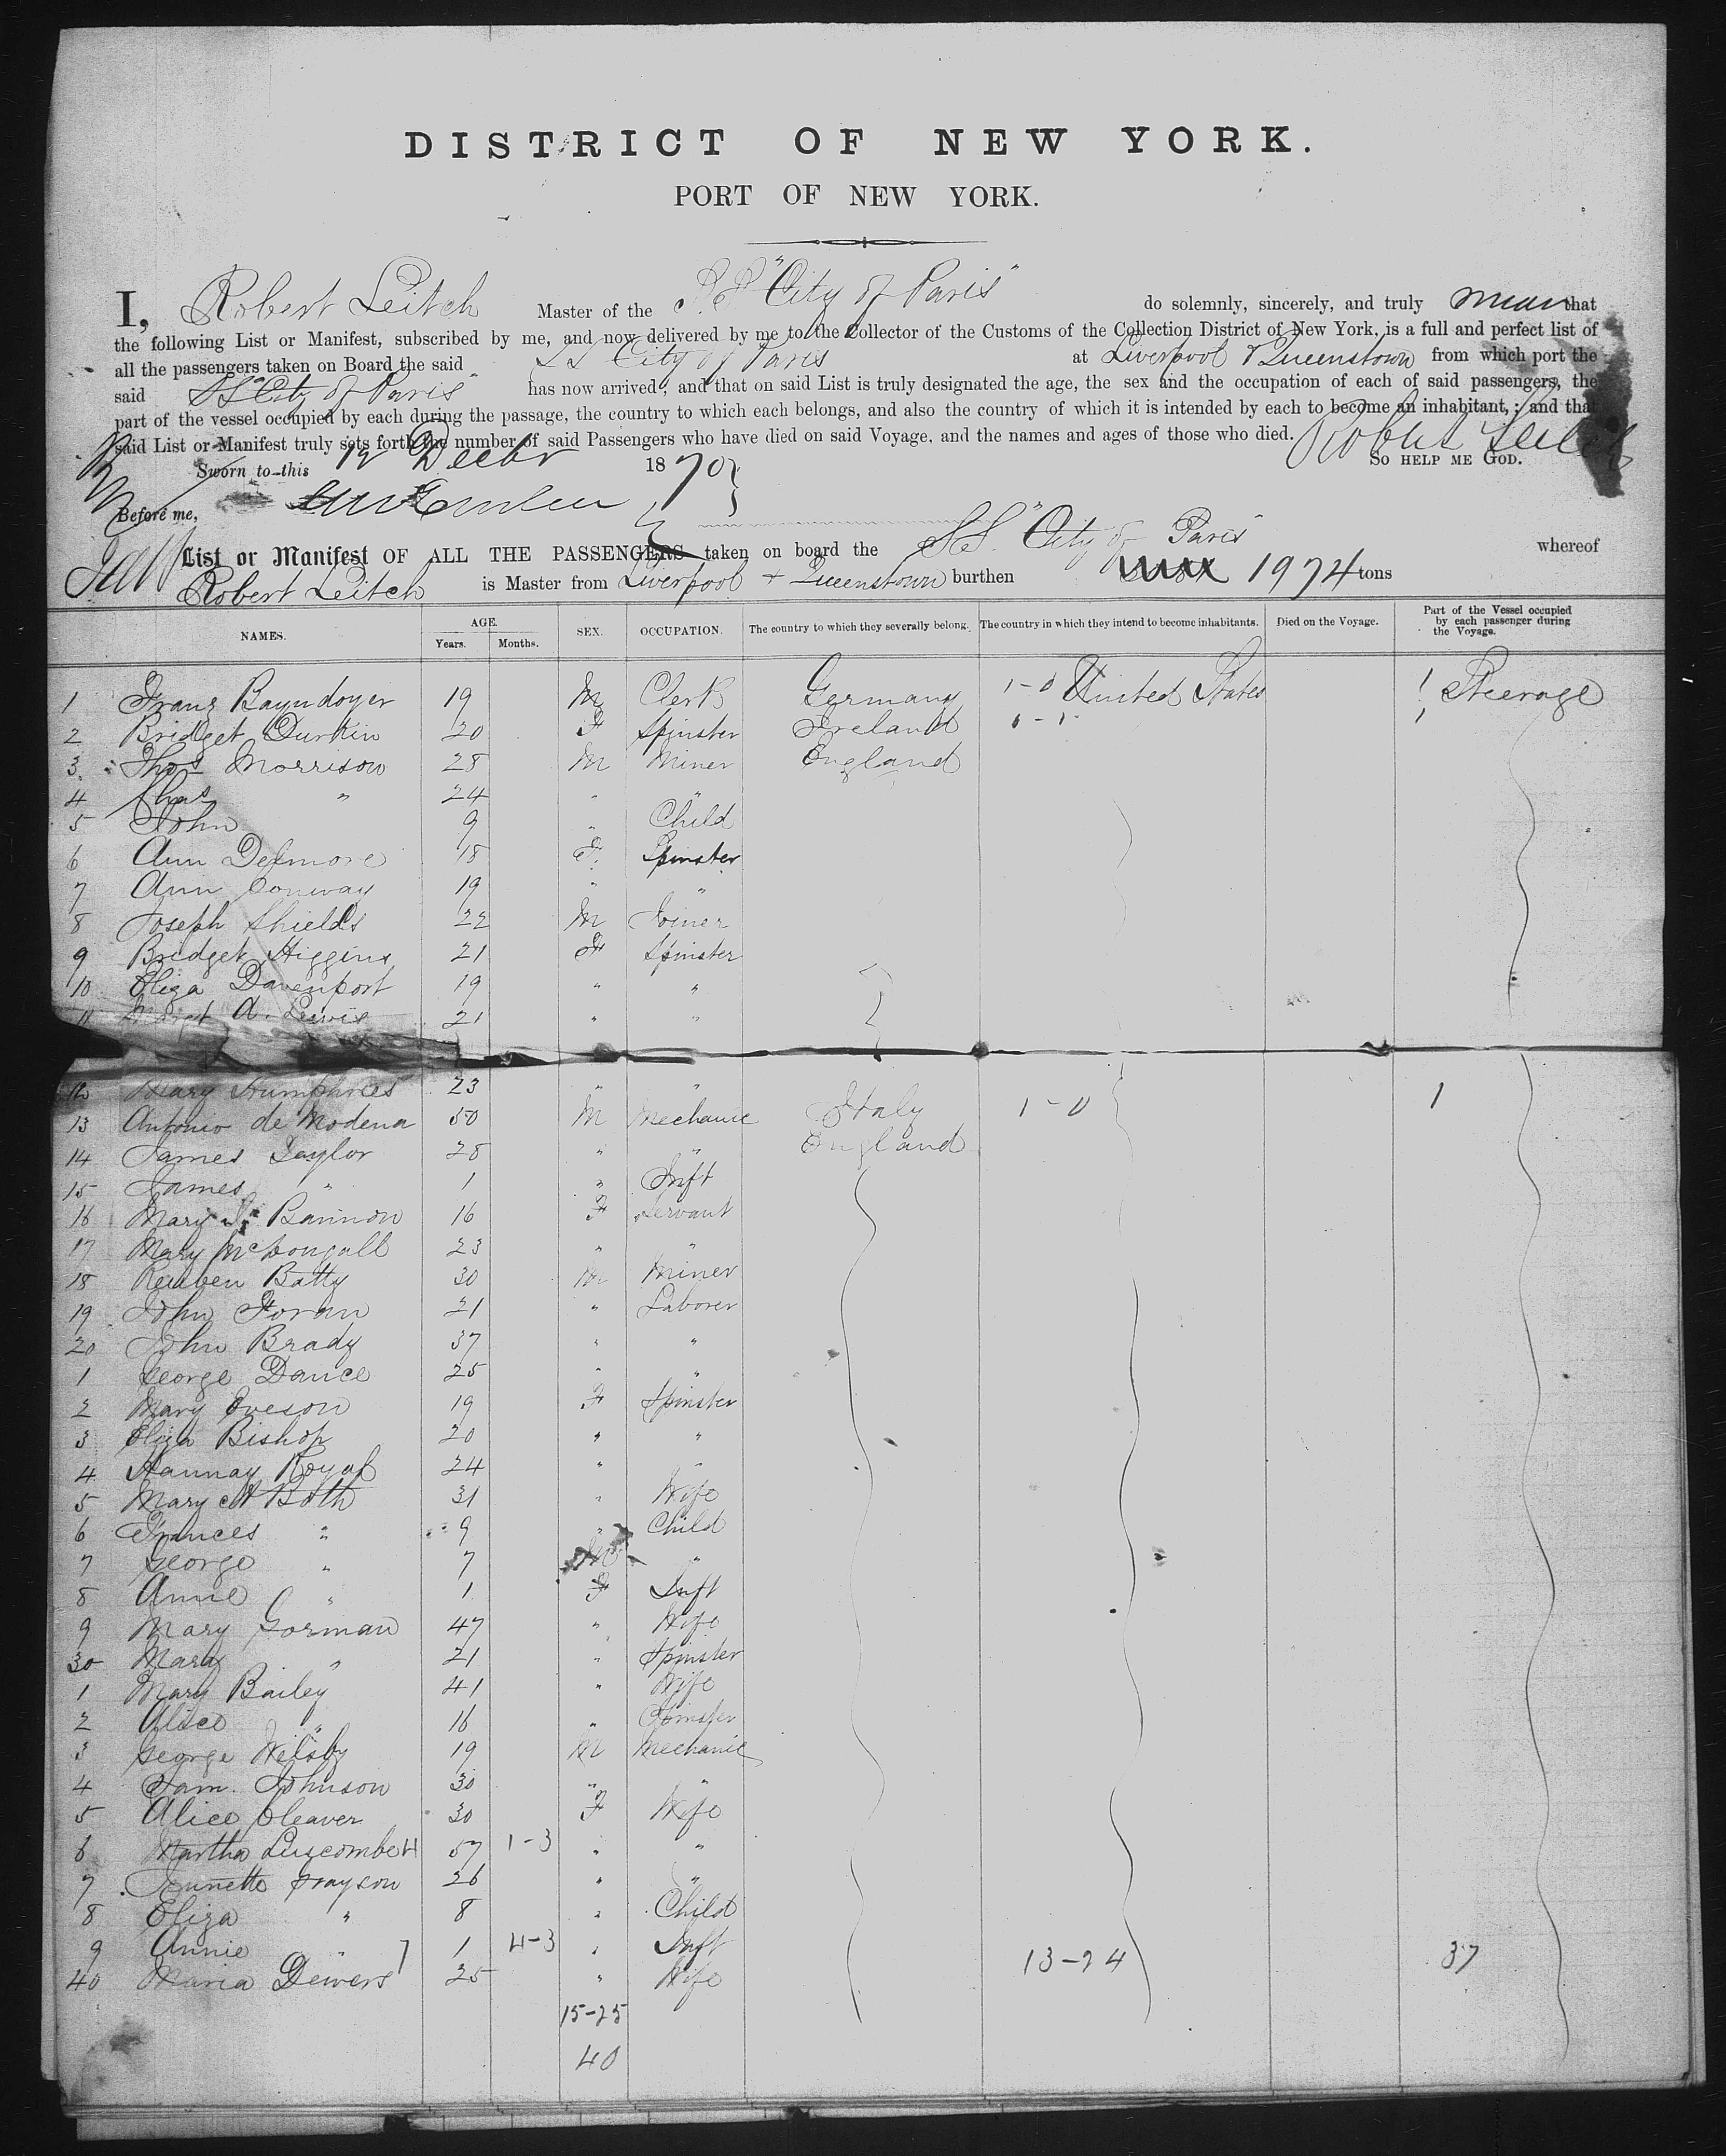 DISTRICT OF NEW YORK.
PORT OF NEW YORK.
I, Robert Leitch Master of the S.S. "City of Paris" do solemnly, sincerely, and truly swear that
the following List or Manifest, subscribed by me, and now delivered by me to the Collector of the Customs of the Collection District of New York, is a full and perfect list of
all the passengers taken on Board the said SS City of Paris at Liverpool & Queenstown from which port the
said SS "City of Paris" has now arrived; and that on said List is truly designated the age, the sex and the occupation of each of said passengers, the
part of the vessel occupied by each during the passage, the country to which each belongs, and also the country of which it is intended by each to become an inhabitant,; and that
said List or Manifest truly sets forth the number of said Passengers who have died on said Voyage, and the names and ages of those who died. Robert Leitch
Sworn to this 12 Decbr 1870 So help me God.
Before me,
List or Manifest OF ALL THE PASSENGERS taken on board the SS. "City of Paris" whereof
Robert Leitch is Master from Liverpool + Queenstown burthen 1974 tons
NAMES. AGE. Years. Months. SEX. OCCUPATION. The country to which they severally belong. The country in which they intend to become inhabitants. Died on the Voyage. Part of the Vessel occupied by each passenger during the Voyage.
1 Franz 19 M Clerk Germany 1-0 United States 1 Steerage
2 Bridget Durkin 20 F Spinster Ireland 0-1 1
3 Thos Morrison 28 M Miner England
4 Chas " 24 " "
5 John 9 " Child
6 Ann Delmore 18 F. Spinster
7 Ann Conway 19 " "
8 Joseph Shields 22 M Joiner
9 Bridget Higgins 21 F Spinster
10 Eliza Davenport 19 " "
11 Margt A. Lewis 21 " "
12 Mary Humphries 23 " "
13 Antonio de Modena 50 M Mechanic Italy 1-0 1
14 James Taylor 28 " " England
15 James " 1 " Inft
16 Mary Bannon 16 F Servant
17 Mary McDougall 23 " "
18 Reuben Batty 30 M Miner
19 John Foran 21 " Laborer
20 John Brady 37 " "
1 George Dance 25 " "
2 Mary Eveson 19 F Spinster
3 Eliza Bishop 20 " "
4 Hannay Royal 24 " "
5 Mary A Both 31 " Wife
6 Frances " 9 " Child
7 George " 7 M "
8 Annie " 1 F Inft
9 Mary Gorman 47 " Wife
30 Mary " 21 " Spinster
1 Mary Bailey 41 " Wife
2 Alice " 16 " Spinster
3 George Wilsby 19 M Mechanic
4 Sam. Johnson 30 " "
5 Alice Cleaver 30 F Wife
6 Martha Luscombe 4 57 1-3 " "
7 Jennette Grayson 26 " "
8 Eliza " 8 " Child
9 Annie " 7 1 4-3 " Inft
40 Maria Dewers 25 " Wife 13-24 37
15-25
40